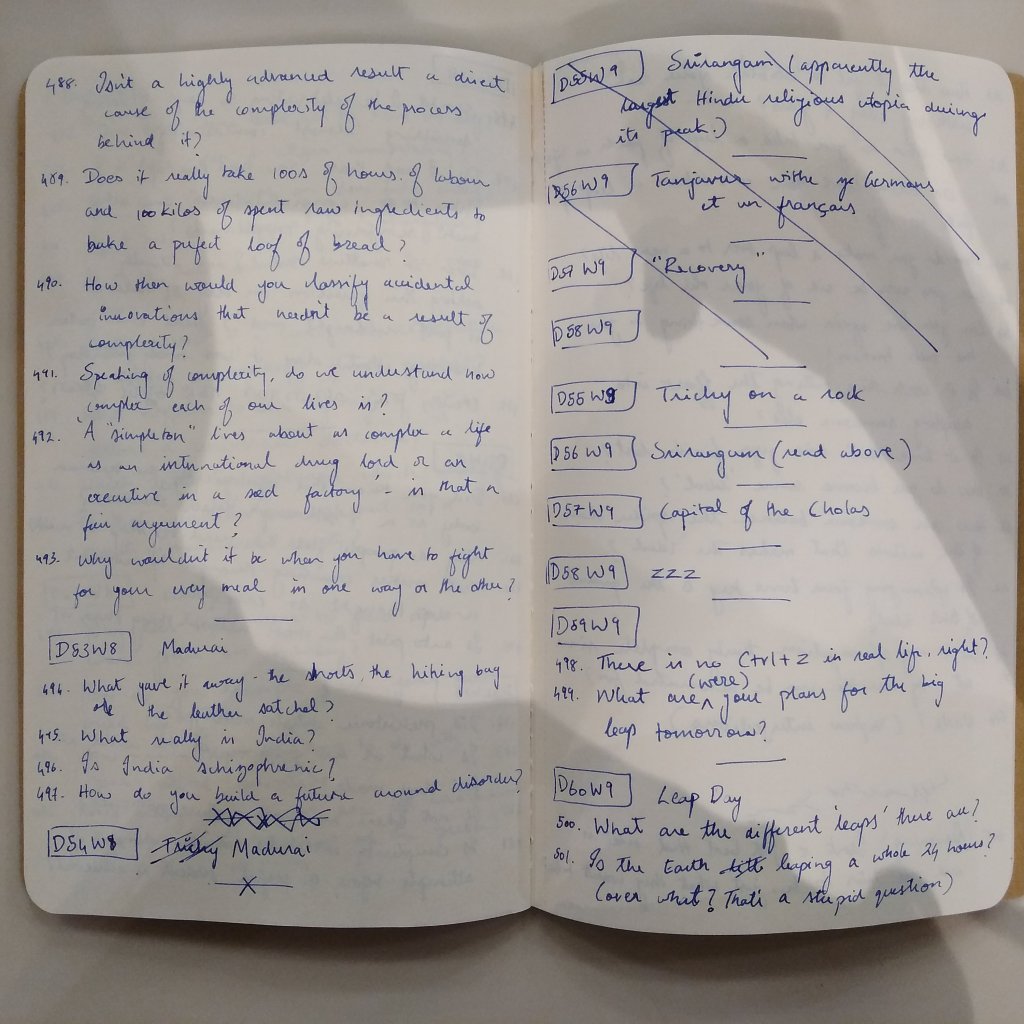 488. Isn't a highly advanced result a direct
cause of the complexity of the process
behind it?
489. Does it really take 100s of hours of labour
and 100 kilos of spent raw ingredients to
bake a perfect loaf of bread?
490. How then would you classify accidental
innovations that needn't be a result of
complexity?
491. Speaking of complexity, do we understand how
complex each of our lives is?
492. 'A "simpleton" lives about as complex a life
as an international drug lord or an
executive in a seed factory' - is that a
fair argument?
493. Why wouldn't it be when you have to fight
for your every meal in one way or the other?
D53W8 Madurai
494. What gave it away - the shorts, the hiking bag
or the leather satchel?
495. What really is India?
496. Is India schizophrenic?
497. How do you build a future around disorder?
D54W8 Trichy Madurai
X
D55W9 Srirangam (apparently the
largest Hindu religious utopia during
its peak.)
D56W9 Tanjavur withe ye Germans
et un français
D57W9 "Recovery"
D58W9
D55W9 Trichy on a rock
D56W9 Srirangam (read above)
D57W9 Capital of the Cholas
D58W9 zzz
D59W9
498. There is no Ctrl+Z in real life, right?
(were)
499. What are ^ your plans for the big
leap tomorrow?
D60W9 Leap Day
500. What are the different 'leaps' there are?
501. Is the Earth leaping a whole 24 hours?
(over what? That's a stupid question)